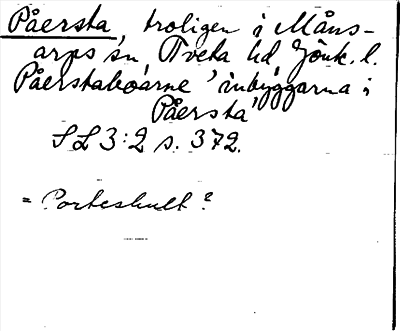 Påersta, troligen i Måns-
arps sn, Tveta hd Jönk. l.
Påerstaboarne 'inbyggarna i
Påersta'
SL 3:2 s. 372.
= Porteshult?